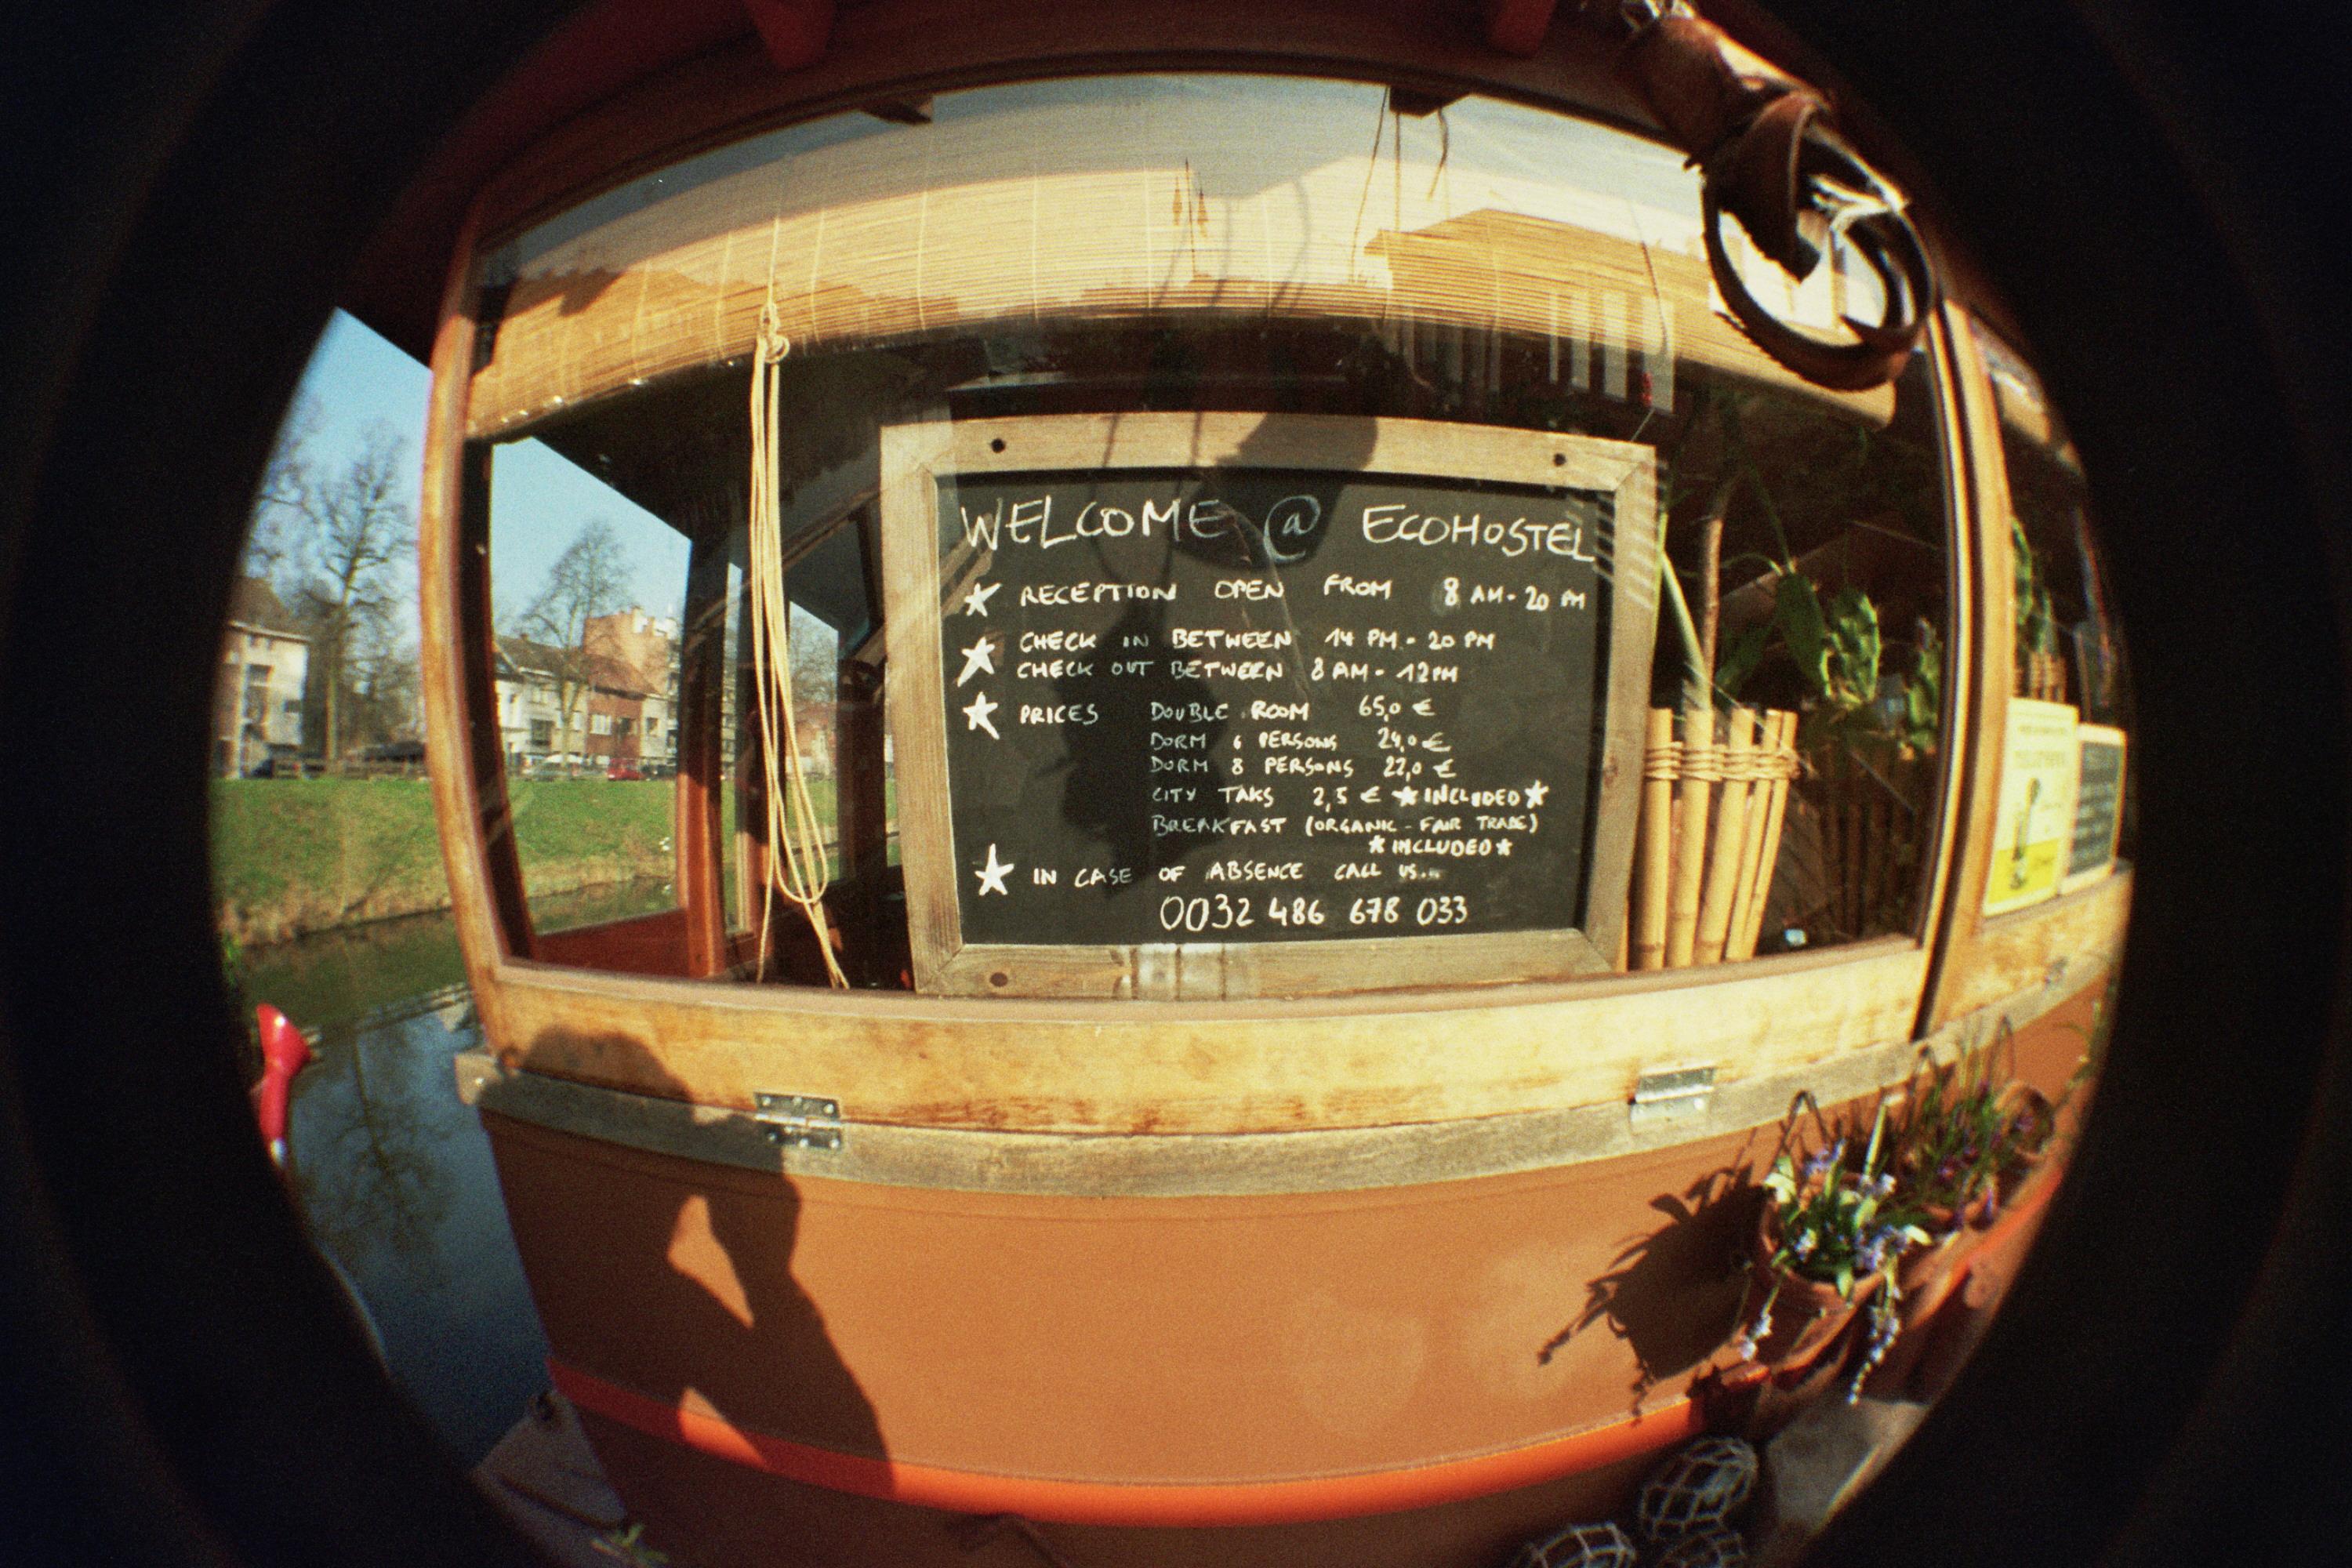 WELCOME @ ECOHOSTEL
RECEPTION OPEN FROM 8 AM - 20 PM
CHECK IN BETWEEN 14 PM - 20 PM
CHECK OUT BETWEEN 8 AM - 12 PM
PRICES DOUBLE ROOM 65,0 €
DORM 6 PERSONS 24,0 €
DORM 8 PERSONS 22,0 €
CITY TAKS 2,5 € ★ INCLUDED ★
BREAKFAST (ORGANIC - FAIR TRADE)
★ INCLUDED ★
IN CASE OF ABSENCE CALL US...
0032 486 678 033